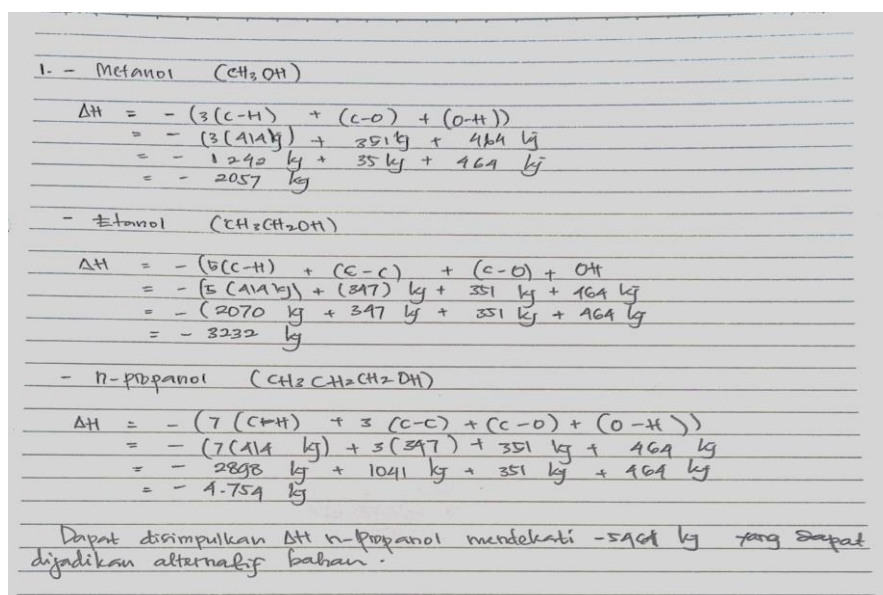 1. - Metanol (CH3OH)
ΔH = - (3(C-H) + (C-O) + (O-H))
= - (3(414kj) + 351kj + 464 kj
= - 1242 kj + 351kj + 464 kj
= - 2057 kj
- Etanol (CH3CH2OH)
ΔH = - (5(C-H) + (C-C) + (C-O) + OH
= - (5(414kj) + (347) kj + 351 kj + 464 kj
= - (2070 kj + 347 kj + 351 kj + 464 kj
= - 3232 kj
- n-propanol (CH3CH2CH2OH)
ΔH = - (7(C-H) + 3(C-C) + (C-O) + (O-H))
= - (7(414 kj) + 3(347) + 351 kj + 464 kj
= - 2898 kj + 1041 kj + 351 kj + 464 kj
= - 4.754 kj
Dapat disimpulkan ΔH n-Propanol mendekati kj yang dapat
dijadikan alternatif bahan.